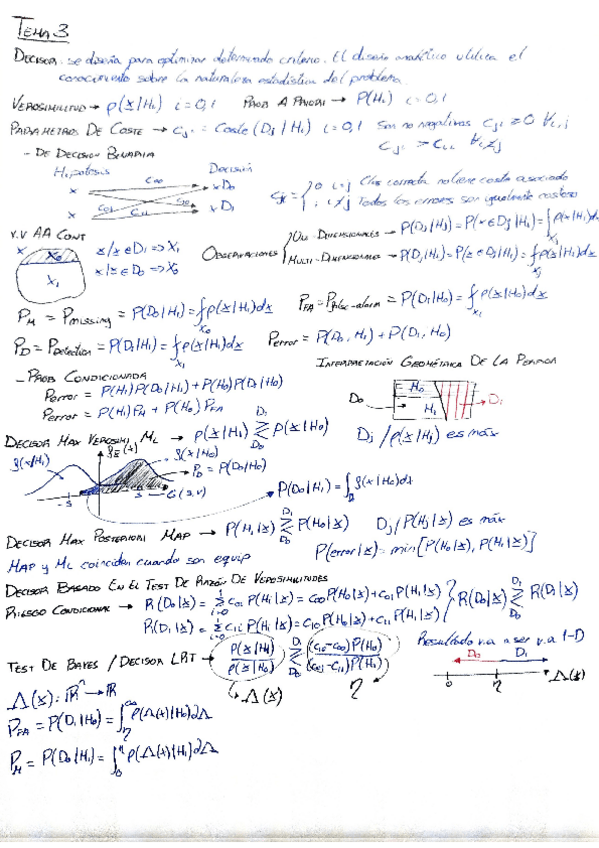 TEMA 3
DECISOR: se diseña para optimizar determinado criterio. El diseño analítico utiliza el
conocimiento sobre la naturaleza estadística del problema.
VEROSIMILITUD → p(x|Hi) i=0,1 PROB A PRIORI → P(Hi) i=0,1
PARÁMETROS DE COSTE → Cji = Coste(Dj|Hi) i=0,1 Son no negativas Cji ≥ 0 ∀i,j
Cji > Cii ∀i≠j
- DE DECISIÓN BINARIA
Hipótesis Decisión
x C00 x D0
x C11 x D1
Cji = { 0 i=j Clas correcta no tiene coste asociado
1 i≠j Todos los errores son igualmente costosos
V.V AA CONT
X X0
X1
x/x∈D1 => X1
x/x∈D0 => X0
OBSERVACIONES { UNI-DIMENSIONALES → P(Dj|Hi) = P(x∈Dj|Hi) = ∫Xj p(x|Hi)dx
MULTI-DIMENSIONALES → P(Dj|Hi) = P(x∈Dj|Hi) = ∫Xj p(x|Hi)dx
PM = Pmissing = P(D0|H1) = ∫X0 p(x|H1)dx PFA = Pfalse-alarm = P(D1|H0) = ∫X1 p(x|H0)dx
PD = Pdetection = P(D1|H1) = ∫X1 p(x|H1)dx Perror = P(D0,H1) + P(D1,H0)
INTERPRETACIÓN GEOMÉTRICA DE LA PERDIDA
- PROB CONDICIONADA
Perror = P(H1)P(D0|H1) + P(H0)P(D1|H0)
Perror = P(H1)PM + P(H0)PFA
D0 → H0 H1 → D1
DECISOR MAX VEROSIMI ML → p(x|H1) ≷ D1 D0 p(x|H0) Dj/p(x|Hj) es máx
f(x|H1) f(x|H0)
PD = P(D0|H0)
-s s
P(D0|H1) = ∫ f(x|H1)dx
DECISOR MAX POSTERIORI MAP → P(H1|x) ≷ D1 D0 P(H0|x) Dj/P(Hj|x) es máx
MAP y ML coinciden cuando son equip P(error|x) = min[P(H0|x), P(H1|x)]
DECISOR BASADO EN EL TEST DE RAZÓN DE VEROSIMILITUDES
RIESGO CONDICIONAL → R(D0|x) = Σ i=0 1 C0i P(Hi|x) = C00 P(H0|x) + C01 P(H1|x) } R(D0|x) ≷ D1 D0 R(D1|x)
R(D1|x) = Σ i=0 1 C1i P(Hi|x) = C10 P(H0|x) + C11 P(H1|x)
TEST DE BAYES / DECISOR LRT → P(x|H1)/P(x|H0) ≷ D1 D0 (C10-C00)P(H0)/(C01-C11)P(H1)
Resultado va a ser v.a 1-D
D0 D1
0 η Λ(x)
Λ(x) η
Λ(x): ℝⁿ → ℝ
PFA = P(D1|H0) = ∫η ∞ p(Λ(x)|H0)dΛ
PM = P(D0|H1) = ∫0 η p(Λ(x)|H1)dΛ